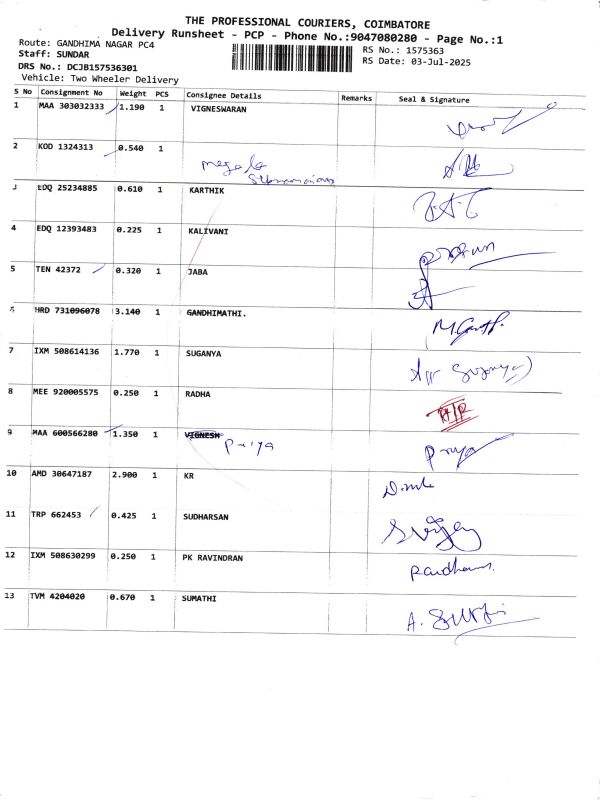 THE PROFESSIONAL COURIERS, COIMBATORE
Delivery Runsheet - PCP - Phone No.:9047080280 - Page No.:1
Route: GANDHIMA NAGAR PC4
RS No.: 1575363
Staff: SUNDAR
RS Date: 03-Jul-2025
DRS No.: DCJB157536301
Vehicle: Two Wheeler Delivery
S No Consignment No Weight PCS Consignee Details Remarks Seal & Signature
1 MAA 303032333 1.190 1 VIGNESWARAN
2 KOD 1324313 0.540 1
3 EDQ 25234885 0.610 1 KARTHIK
4 EDQ 12393483 0.225 1 KALIVANI
5 TEN 42372 0.320 1 JABA
6 HRD 731096078 3.140 1 GANDHIMATHI.
7 IXM 508614136 1.770 1 SUGANYA
8 MEE 920005575 0.250 1 RADHA
9 MAA 600566280 1.350 1 VIGNESH Priya Priya
10 AMD 30647187 2.900 1 KR
11 TRP 662453 0.425 1 SUDHARSAN
12 IXM 508630299 0.250 1 PK RAVINDRAN
13 TVM 4204020 0.670 1 SUMATHI